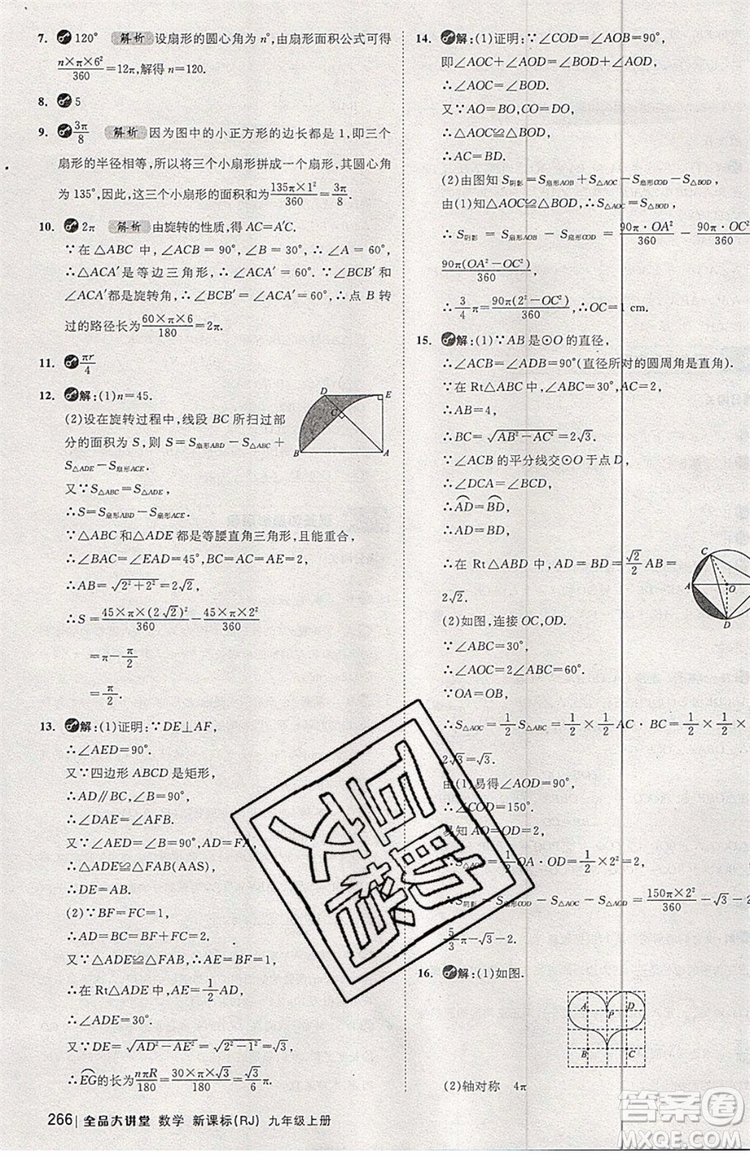 7. 120° 解析 设扇形的圆心角为 n°,由扇形面积公式可得
n×π×6²/360=12π,解得 n=120.
8. 5
9. 3π/8 解析 因为图中的小正方形的边长都是 1,即三个
扇形的半径相等,所以将三个小扇形拼成一个大扇形,其圆心角
为 135°,因此,这三个小扇形的面积和为 135π×1²/360=3π/8.
10. 2π 解析 由旋转的性质,得 AC=A′C.
∵在△ABC 中,∠ACB=90°,∠ABC=30°,
∴△ACA′是等边三角形,∠BCB′=∠ACA′=60°.
∵∠BCB′和∠ACA′都是旋转角,∴∠BCB′=60°,∴点 B 转
过的路径长为 60×π×6/180=2π.
11. πr/4
12. 解:(1)n=45.
(2)设在旋转过程中,线段 BC 所扫过部
分的面积为 S,则 S=S扇形ABD-S△ABC+
S△ADE-S扇形ACE.
又∵S△ABC=S△ADE,
∴S=S扇形ABD-S扇形ACE.
∵△ABC 和△ADE 都是等腰直角三角形,且能重合,
∴∠BAC=∠DAE=45°,AC=AE=2.
∴AB=√2²+2²=2√2,
∴S=45×π×(2√2)²/360-45×π×2²/360
=π-π/2
=π/2.
D E C B A
13. 解:(1)证明:∵DE⊥AF,
∴∠AED=90°.
又∵四边形 ABCD 是矩形,
∴AD∥BC,∠B=90°,
∴∠DAE=∠AFB,
∠AED=∠B=90°.
又∵AF=AD,
∴△ADE≌△FAB(AAS),
∴DE=AB.
(2)∵BF=FC=1,
∴AD=BC=BF+FC=2.
又∵△ADE≌△FAB,
∴AE=BF=1,
∴在 Rt△ADE 中,AE=1/2AD,
∴∠ADE=30°.
又∵DE=√AD²-AE²=√2²-1²=√3,
∴EG的长=nπR/180=30×π×√3/180=√3π/6.
14. 解:(1)证明:∵∠COD=∠AOB=90°,
即∠AOC+∠AOD=∠BOD+∠AOD,
∴∠AOC=∠BOD.
又∵AO=BO,CO=DO,
∴△AOC≌△BOD,
∴AC=BD.
(2)由图知 S阴影=S扇形AOB+S△AOC-S扇形COD-S△BOD,
又△AOC≌△BOD,
∴S阴影=S扇形AOB-S扇形COD=90π·OA²/360-90π·OC²/360=
90π(OA²-OC²)/360,
∴3/4π=90π(2²-OC²)/360,∴OC=1 cm.
15. 解:(1)∵AB 是⊙O 的直径,
∴∠ACB=∠ADB=90°(直径所对的圆周角是直角).
∵∠ABC=30°,AB=4,
∴AC=2,
∴BC=√AB²-AC²=2√3.
∵∠ACB的平分线交⊙O 于点 D,
∴∠DCA=∠BCD,
∴AD=BD,
∴AD=BD,
∴在 Rt△ABD 中,AD=BD=√2/2AB=
2√2.
(2)如图,连接 OC,OD.
∵∠ABC=30°,
∴∠AOC=2∠ABC=60°.
∵OA=OB,
∴S△AOC=1/2S△ABC=1/2×1/2×AC·BC=1/2×1/2×2×
2√3=√3.
由(1)易得∠AOD=90°,
∴∠COD=150°.
易知 S△AOD=
1/2×OA·OD=1/2×2²=2,
∴S阴影=S扇形COD-S△AOC-S△AOD=150π×2²/360-
5/3π-√3-2.
C A O D
16. 解:(1)如图.
A P D
B C
(2)轴对称 4π
互助
文档
266 全品大讲堂 数学 新课标(RJ) 九年级上册
答案圈
MXQE.COM